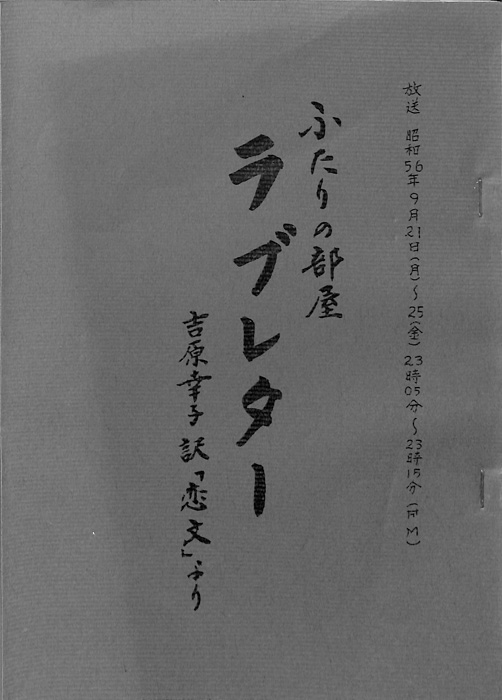 放送 昭和56年9月21日(月)〜25(金)23時05分〜23時15分(FM)
ふたりの部屋
ラブレター
吉原幸子訳「恋文」より